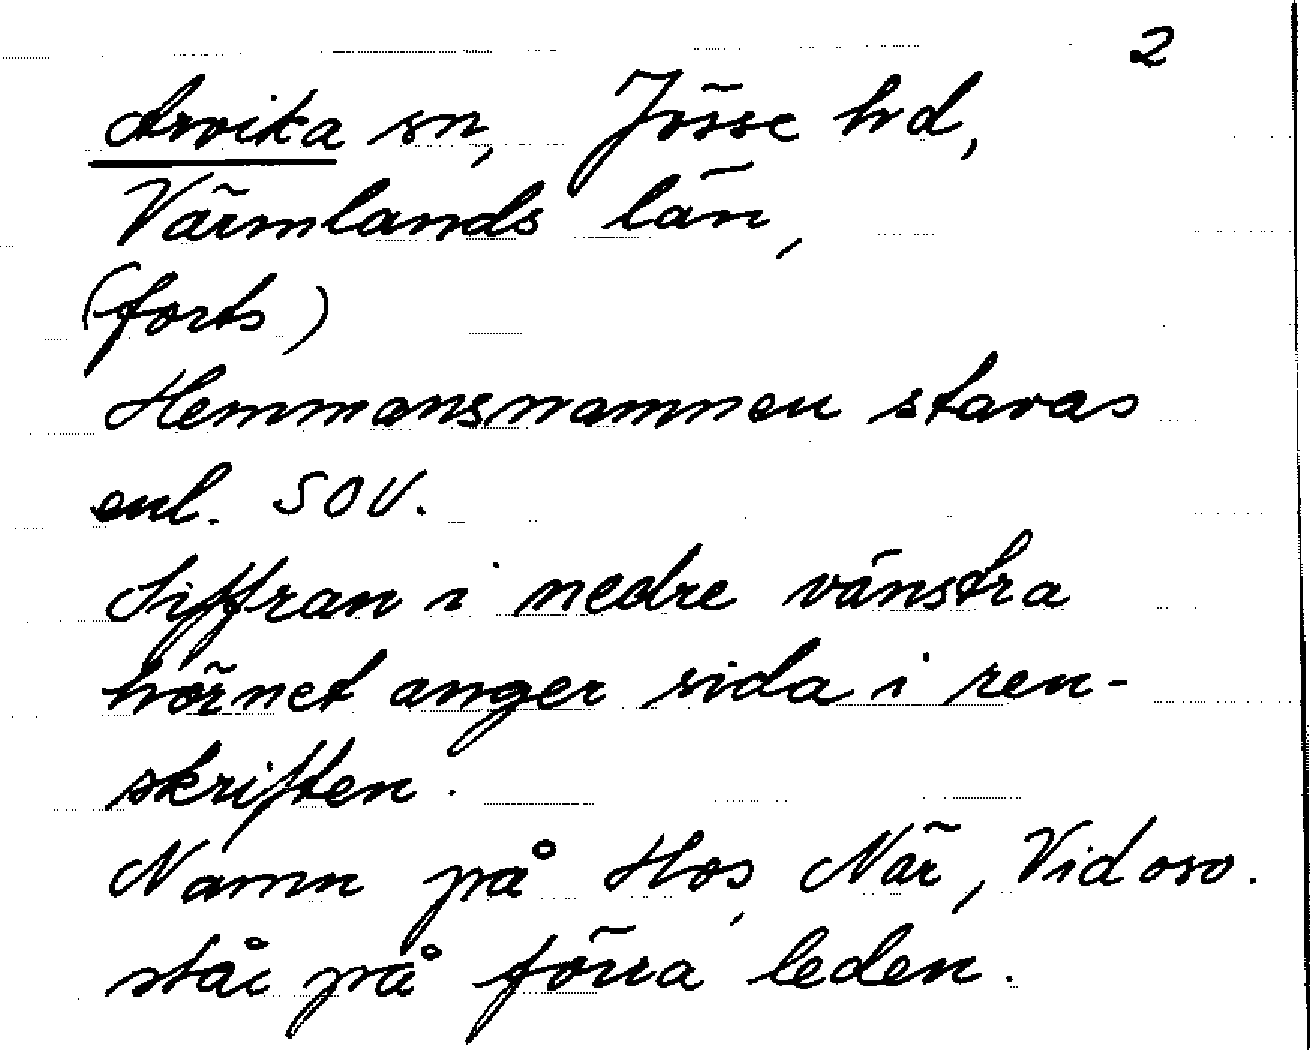 2
Arvika sn, Jösse hd,
Värmlands län,
(forts)
Hemmansnamnen stavas
enl. SOV.
Siffran i nedre vänstra
hörnet anger sida i ren-
skriften.
Namn på Hos, När, Vid oso.
står på förra leden.